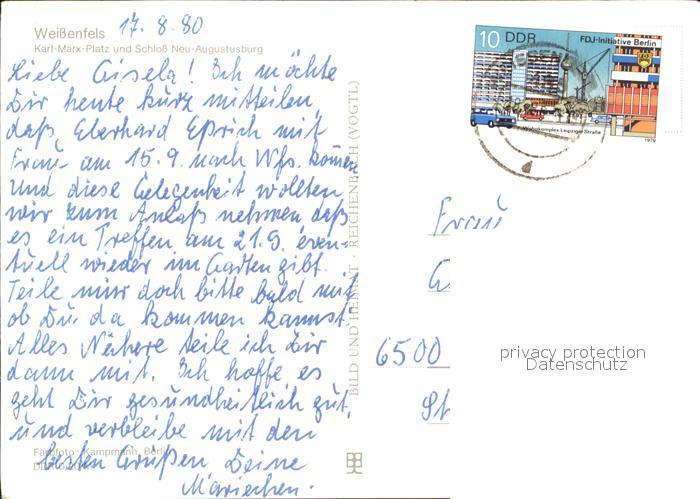 17. 8. 80
Weißenfels
Karl-Marx-Platz und Schloß Neu-Augustusburg
Liebe Gisela! Ich möchte
Dir heute kurz mitteilen,
daß Eberhard mit
Frau am 15.9. nach Wfs. kommen
und diese Gelegenheit wollten
wir zum Anlaß nehmen, daß
es ein Treffen am 21.9. even-
tuell wieder im Garten gibt.
Teile mir doch bitte bald mit,
ob Du da kommen kannst.
Alles Nähere teile ich Dir
dann mit. Ich hoffe, es
geht Dir gesundheitlich gut,
und verbleibe mit den
besten Grüßen Deine
Mariechen.
Farbfoto: Kampmann, Berlin
BILD UND HEIMAT · REICHENBACH (VOGTL)
10 DDR
FDJ-Initiative Berlin
Wohnkomplex Leipziger Straße
1979
Frau
G
6500
St
privacy protection
Datenschutz